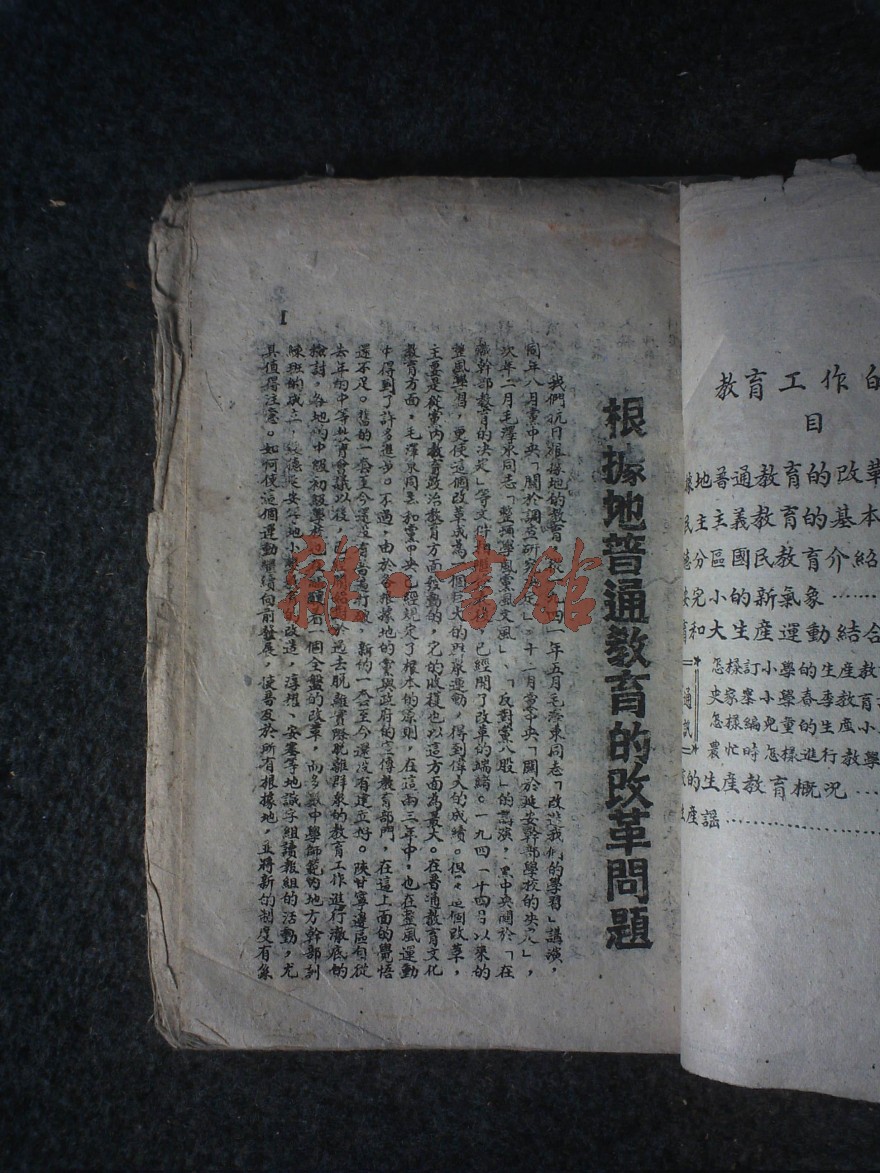 教育工作的
目
據地普通教育的改革
民主主義教育的基本
分區國民教育介紹
完小的新氣象………
育和大生產運動結合
通
訊
怎樣訂小學的生產教
史家寨小學春季教育
怎樣編兒童的生產小
農忙時怎樣進行教學
的生產教育概況……
產謡………………
根據地普通教育的改革問題
我們抗日根據地的教育 四一年五月毛澤東同志「改造我們的學習」講演，
同年八月黨中央「關於調查研究 定」，十二月黨中央「關於延安幹部學校的決定」，
次年二月毛澤東同志「整頓學風黨風文風」、「反對黨八股」的講演， 中央關於「在
職幹部教育的決定」等文件 已經開了改革的端緒。一九四二 四月以來的
整風學習，更使這個改革成為一個巨大的群眾運動，得到偉大的成績。但 這個改革，
主要是從黨內教育政治教育方面發動的，它的收穫也以這方面為最大。在普通教育文化
教育方面，毛澤東同志和黨中央已經規定了根本的原則，在這兩三年中，也在整風運動
中得到了許多進步。不過，由於各根據地的黨與政府的宣傳教育部門，在這上面的覺悟
還不足。舊的一套至今還沒有 打 ，新的一套至今還沒有建立好。陝甘寧邊區自從
去年的中等教育會議以後，已 開始對於過去脫離實際脫離群眾的教育工作進行澈底的
檢討。各地的中級初級學校 著一個全盤的改革，而多數中學師範的地方幹部訓
練班的成立， 德延安等地小 的改造，淳耀、安塞等地識字組讀報組的活動，尤
具值得注意。如何使這個運動繼續向前發展，使普及於所有根據地，並將新的制度有系
1
雜·書館